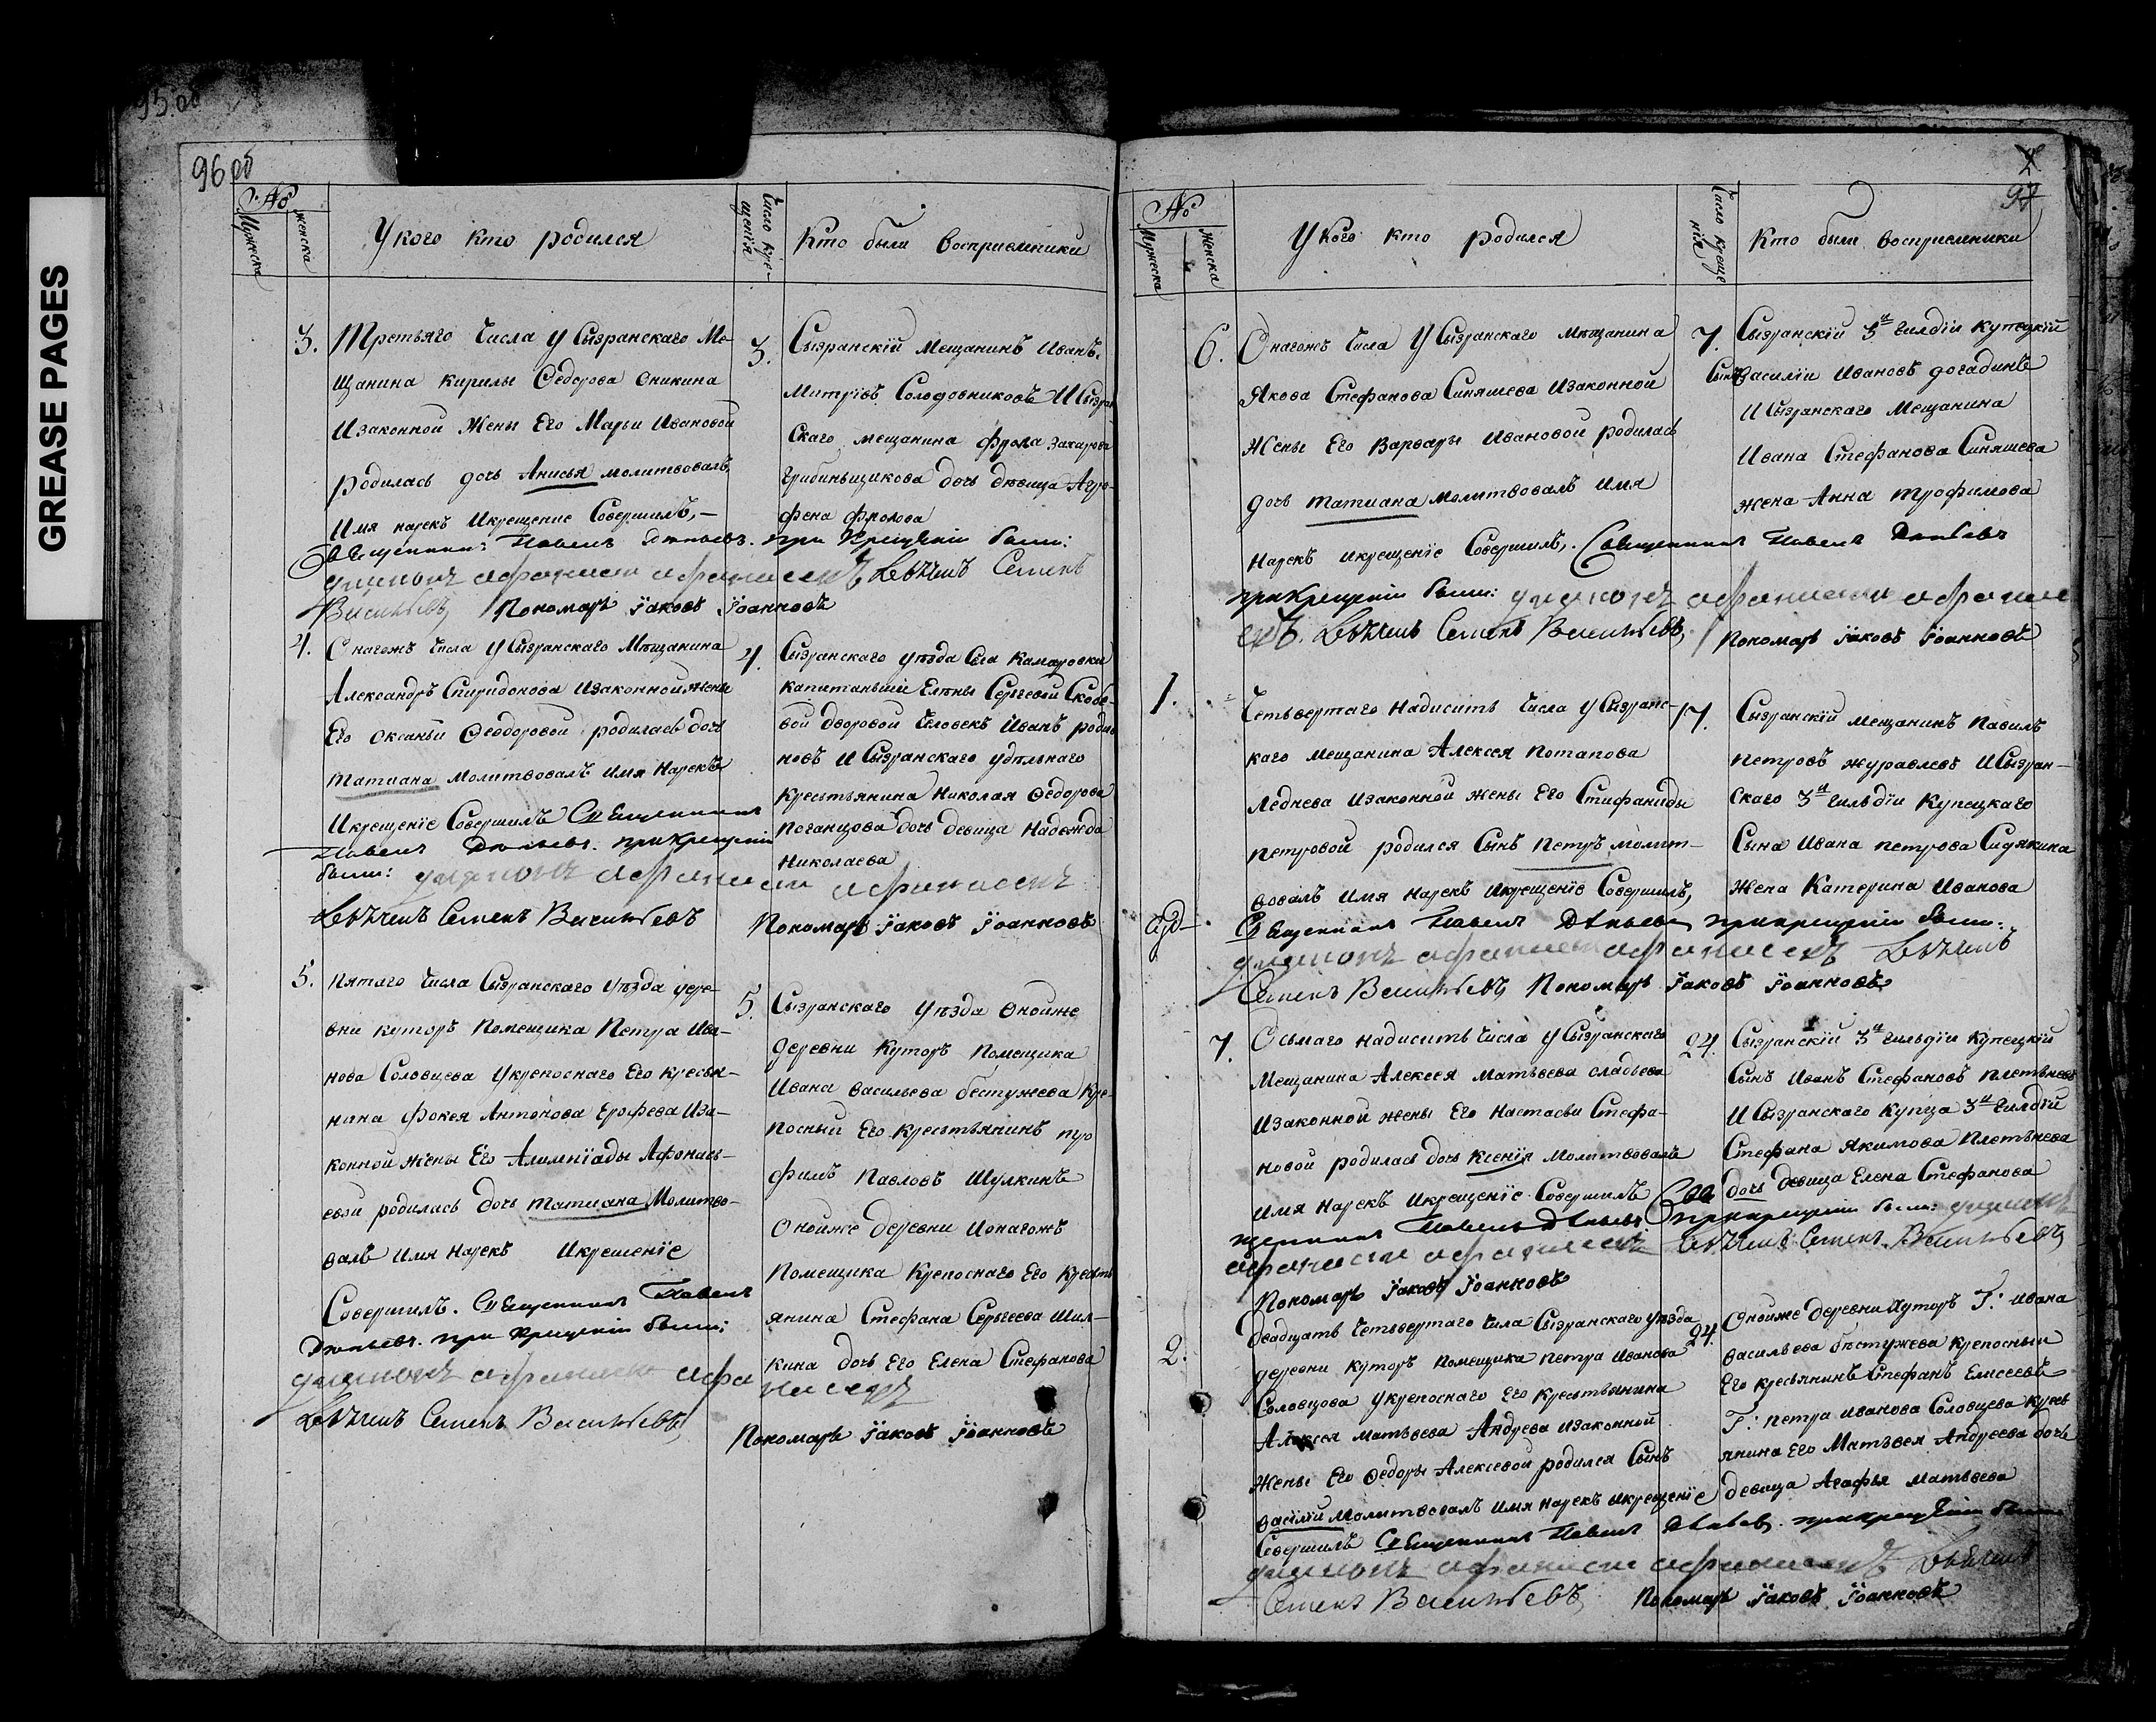 GREASE PAGES
95 об
96 об
№
Мужеска
женска
У кого кто родился
Число кре-
щения
Кто были восприемники
3.
Третьяго числа у Сызранскаго Ме-
щанина Кирилы Федорова Оникина
и законной жены его Марьи Ивановой
родилась дочь Анисья молитвовалъ,
имя нарекъ и крещение совершилъ,
Священникъ Павелъ
при крещении были:
Семенъ
Васильевъ Пономарь Іаковъ Іоанновъ
3.
Сызранскій мещанинъ Иванъ
Митрiвъ Солодовниковъ и Сызран
скаго мещанина Фрола Захарова
Грибеньщикова дочь девица Агро-
фена Фролова
4.
Онагожъ числа у Сызранскаго Мѣщанина
Александръ Спиридонова и законной жены
его Оксаньи Феодоровой родилась дочь
татиана молитвовалъ имя нарекъ
и крещеніе совершилъ Священникъ
Павелъ при крещении
были:
Семенъ Васильевъ
Пономарь Іаковъ Іоанновъ
4.
Сызранскаго уѣзда Села Камаровки
капитаньши Елѣны Сергѣевой Скобе-
вой дворовой человекъ Иванъ родио
новъ и Сызранскаго удѣльнаго
крестьянина Николая Федорова
Поганцова дочь девица Надежда
Николаева
5.
Пятаго числа Сызранскаго уѣзда дере-
вни хуторъ помещика Петра Ива-
нова Соловцева у крепоснаго его кресья-
нина Фокея Антонова Ерофева и за-
конной жены его Алимпіады Афонась-
евой родилась дочь татиана молитво-
валъ имя нарекъ и крещеніе
совершилъ. Священникъ Павелъ
при крещении были:
Семенъ Васильевъ
Пономарь Іаковъ Іоанновъ
5.
Сызранскаго уѣзда оной же
деревни хуторъ помещика
Ивана Васильева бестужева кре-
посный его крестьянинъ про
фимъ Павловъ Шулкинъ
оной же деревни и онагожъ
помещика крепоснаго его кресть
янина Стефана Сергѣева Шил-
кина дочь его Елена Стефанова
97
№
Мужеска
женска
У кого кто родился
Число креще
нія
Кто были восприемники
6.
Онагожъ числа у Сызранскаго мѣщанина
Якова Стефанова Синяшева и законной
жены его Варвары Ивановой родилась
дочь татиана молитвовалъ имя
нарекъ и крещеніе совершилъ, Священникъ Павелъ
при крещении были:
Семенъ Васильевъ, Пономарь Іаковъ Іоанновъ
7.
Сызранскій 3й гилдіи купецкій
Сынъ василіи Ивановъ догадинъ
и Сызранскаго мещанина
Ивана Стефанова Синяшева
жена Анна трофимова
1.
Четьвертаго надисить числа у Сызранс-
каго мещанина Алексея Потапова
Леднева и законной жены его Стифаниды
петровой родился сынъ петръ молит-
вовалъ имя нарекъ и крещеніе совершилъ,
Священникъ Павелъ при крещении были:
Семенъ Васильевъ Пономарь Іаковъ Іоанновъ
17.
Сызранскій мещанинъ Павилъ
петровъ журавлевъ и Сызран-
скаго 3й гильдіи купецкаго
сына Ивана петрова Сидякина
жена Катерина Иванова
7.
Осьмаго надисить числа у Сызранскаго
мещанина Алексея Матьвева оладьева
и законной жены его Настасьи Стефа-
новой родилась дочь ксенія молитвовалъ
имя нарекъ и крещеніе совершилъ Свя
щенникъ Павелъ при крещении были:
Семенъ Васильевъ
Пономарь Іаковъ Іоанновъ
24.
Сызранскій 3й гильдіи купецкій
сынъ Иванъ Стефановъ плетьневъ
и Сызранскаго купца 3й гилдіи
Стефана Якимова Плетьнева
дочь девица Елена Стефанова
2.
Двадцать четьвертаго чила Сызранскаго уѣзда
деревни хуторъ помещика петра Иванова
Соловцова у крепоснаго его крестьянина
Алексея матьвева Андрева и законной
жены его Федоры Алексевой родился сынъ
василій молитвовалъ имя нарекъ и крещеніе
совершилъ Священникъ Павелъ при крещении были
Семенъ Васильевъ Пономарь Іаковъ Іоанновъ
24.
Оной же деревни хуторъ Г: Ивана
васильева бѣстужева крепосный
его кресьянинъ Стефанъ Елисеевъ
Г: петра иванова Соловцева кресь
янина его Матьвея Андреева дочь
девица Агафья матьвева